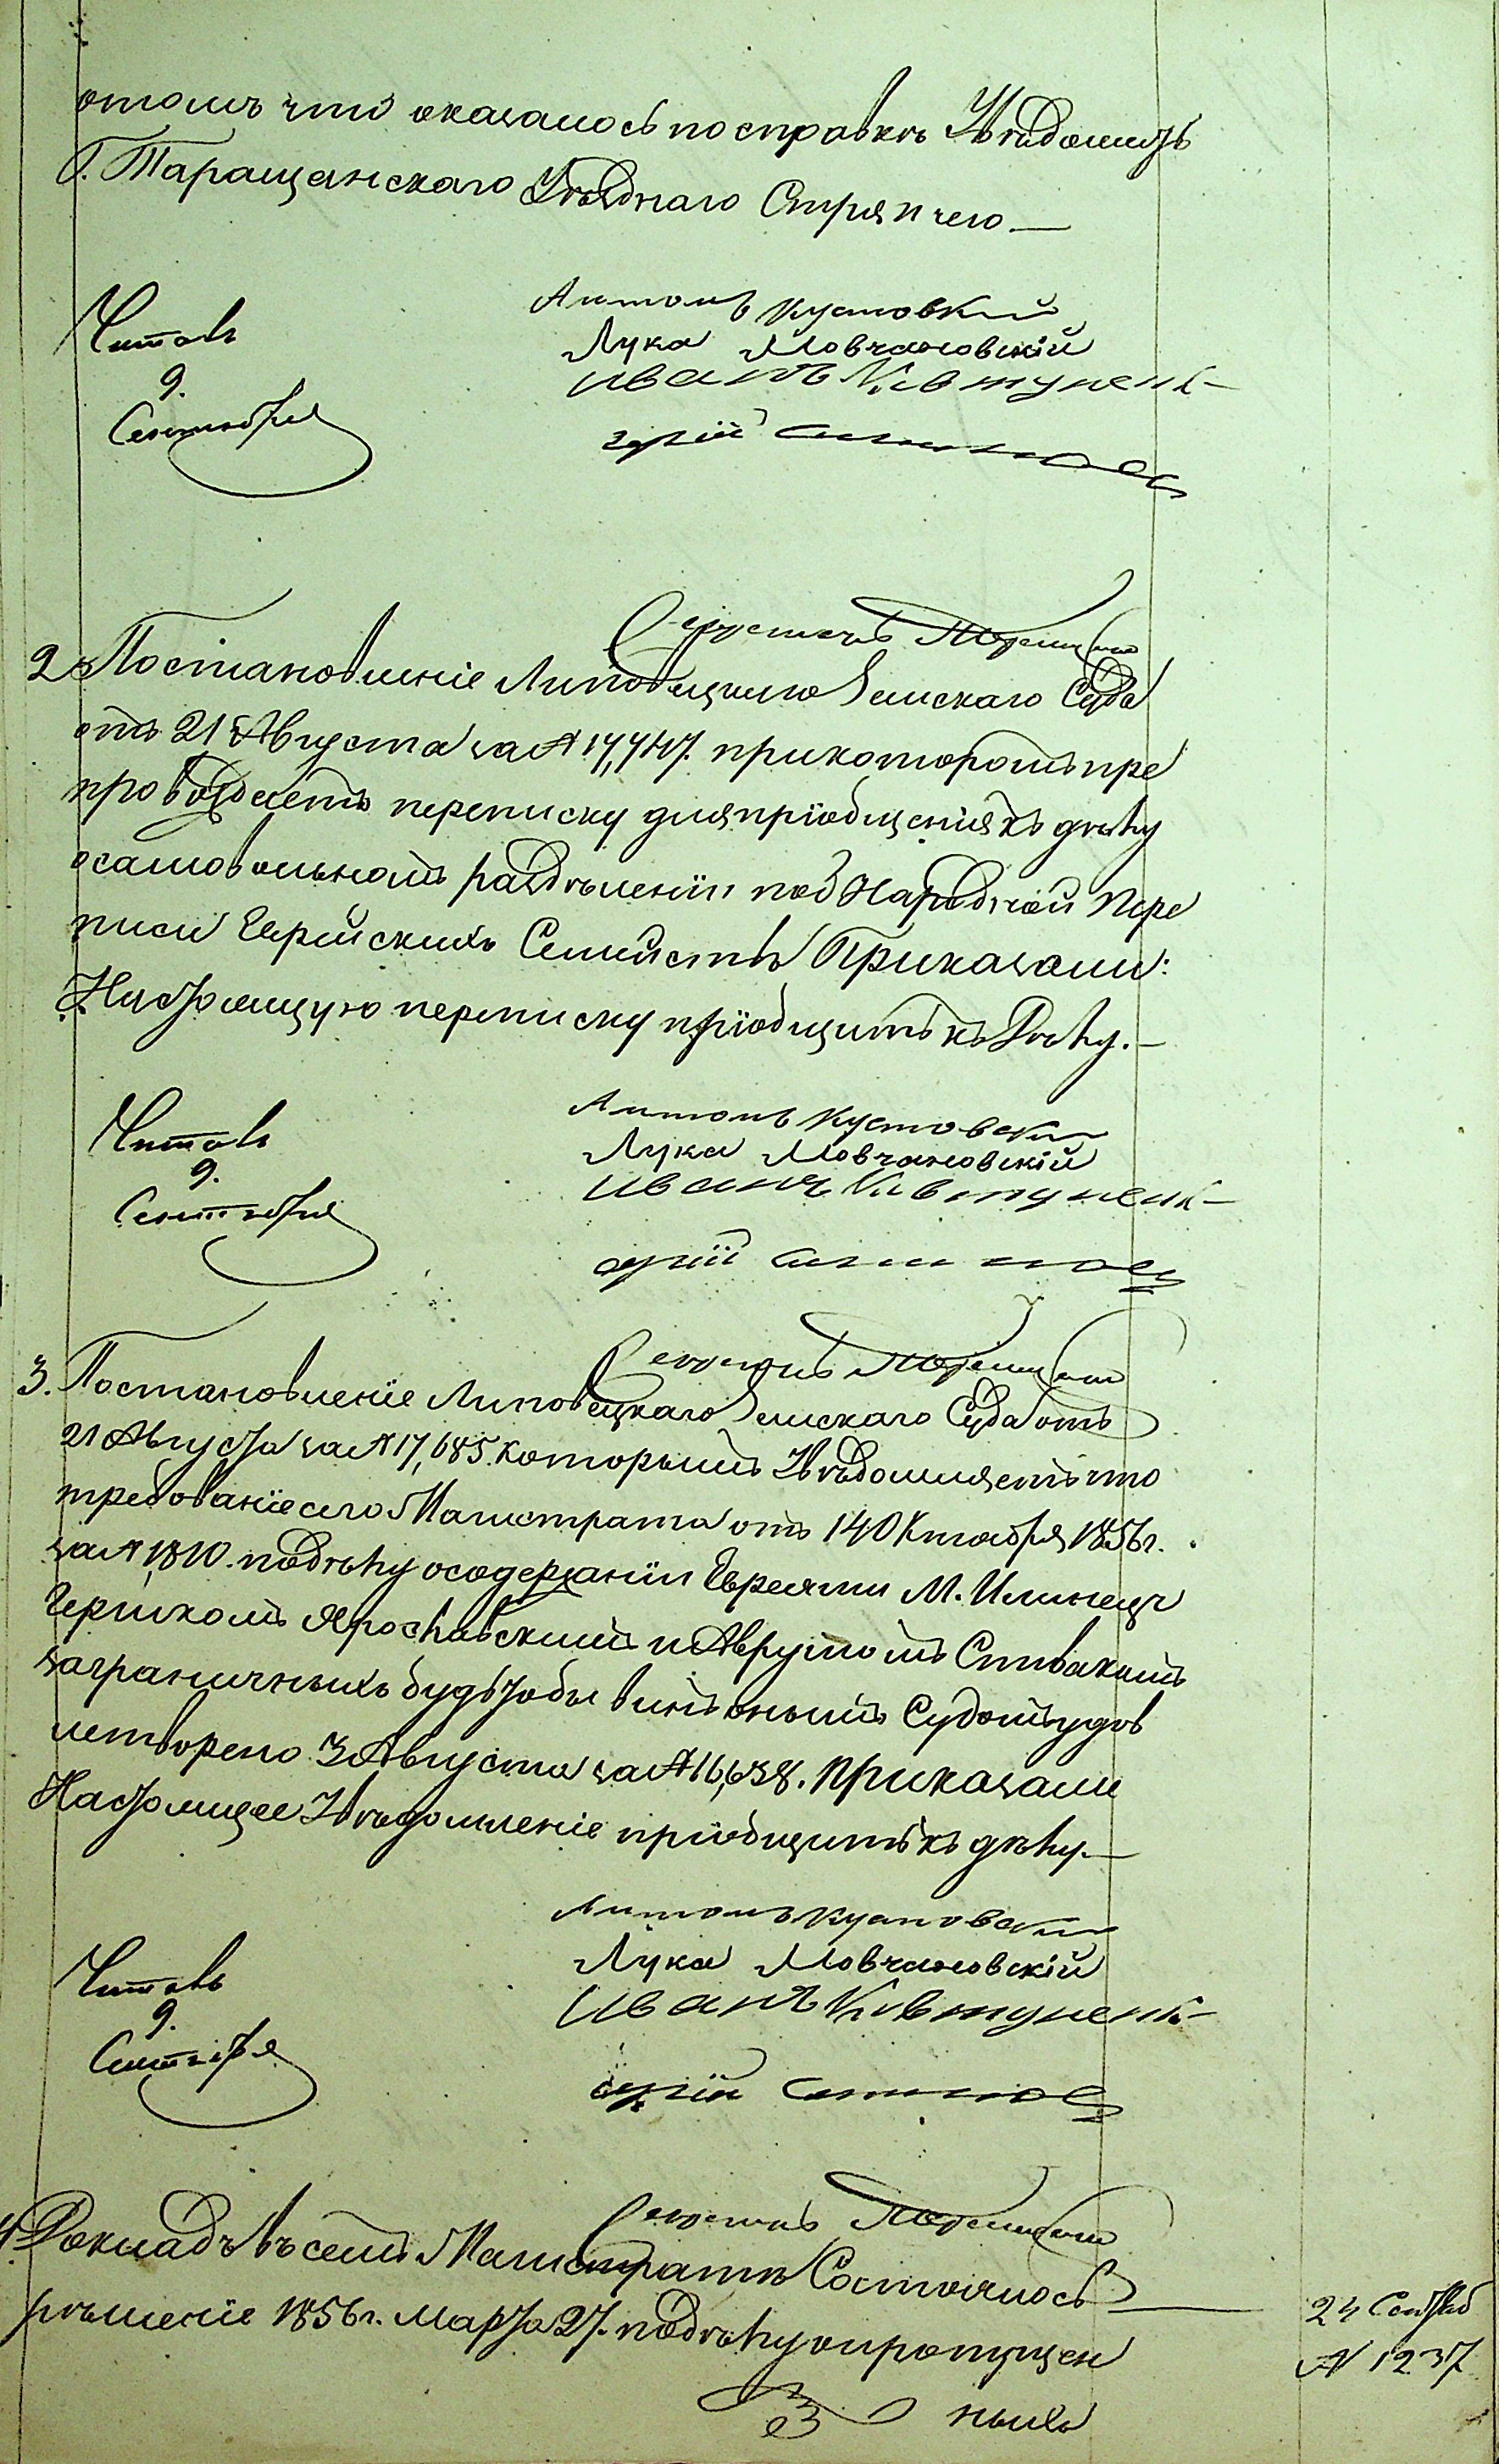 отомъ что оказалось по справкѣ Увѣдомить
Г. Таращанскаго Уѣзднаго Стряпчего.—
Антонъ Кустовскій
Лука Мовчановскій
Иванъ
Читалъ
9.
Сентября
Секретарь
2. Постановленіе Липовецкаго Земскаго Суда
отъ 21 Августа за № 17,747. при которомъ пре
провождаетъ переписку для пріобщенія къ дѣлу
о самовольномъ раздѣленіи по 8 Народной Пере
писи Еврейскихъ Семействъ Приказали:
Настоящую переписку пріобщить къ Дѣлу.—
Антонъ Кустовскій
Лука Мовчановскій
Иванъ
Читалъ
9.
Сентября
Секретарь
3. Постановленіе Липовецкаго Земскаго Суда отъ
21 Августа за № 17,685. которымъ Увѣдомляетъ что
требованіе сего Магистрата отъ 14 Октября 1856 г.
за № 1,810. по дѣлу о содержаніи Евреями М. Илинецъ
Гершкомъ Ярославскимъ и Аврумомъ Спивакомъ
заграничныхъ будьтобы винъ онымъ Судомъ удов
летворено 3 Августа за № 16,638. Приказали
Настоящее Увѣдомленіе пріобщить къ дѣлу.—
Антонъ Кустовскій
Лука Мовчановскій
Иванъ
Читалъ
9.
Сентября
Секретарь
4. Докладъ въ семъ Магистратѣ Состоялось
рѣшеніе 1856 г. Марта 27. по дѣлу о пропущен
24 Сентяб
№ 1237
ныхъ